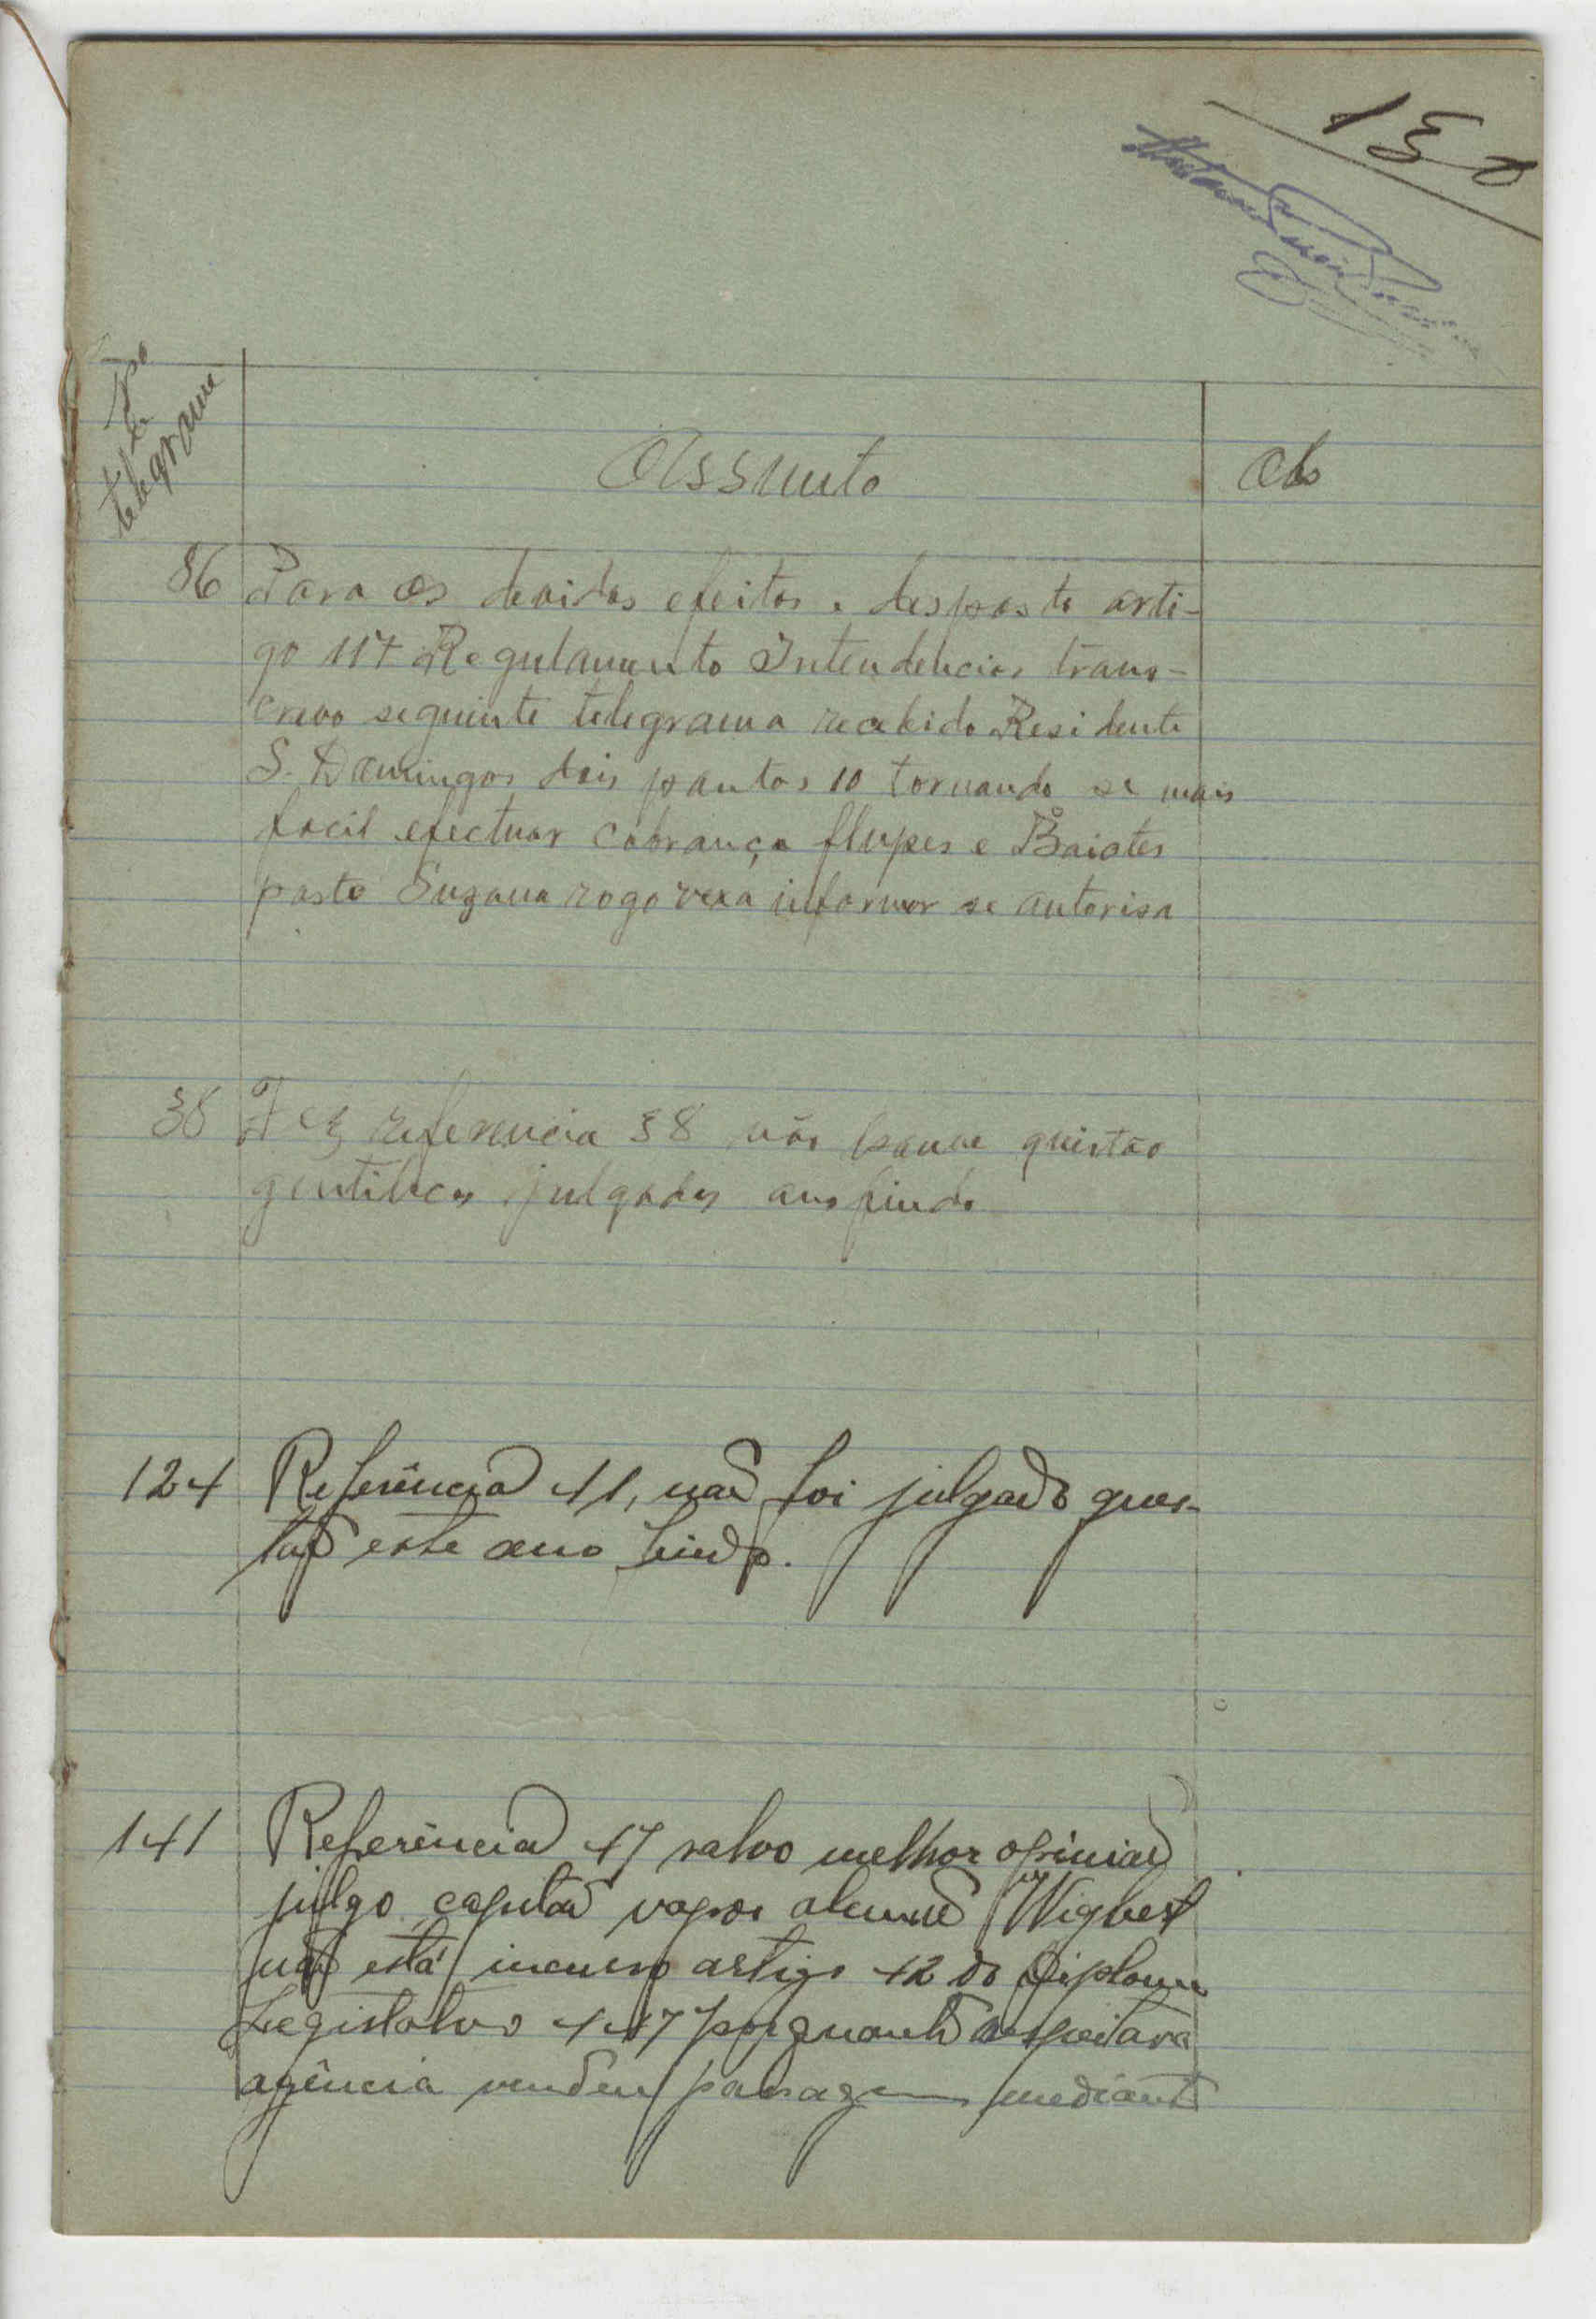 130
Nº
de
telegrama
Assunto
Obs
86 Para os devidos efeitos e desposto arti-
go 117 Regulamento Intendencias trans-
crevo seguinte telegrama recebido Residente
S. Domingos dois pontos 10 tornando se mais
facil efectuar cobrança flupes e Baiotes
posto Suzana rogo vexa informar se autorisa
38 referencia 38 não houve questão
gentilicas julgadas ano findo
124 Referência 41, não foi julgado ques-
tão este ano findo.
141 Referência 47 salvo melhor opinião
julgo capitão vapor alemão Wigbert
não está incurso artigo 42 do Diploma
Legislativo 447 porquanto
agência vendeu passagem mediante